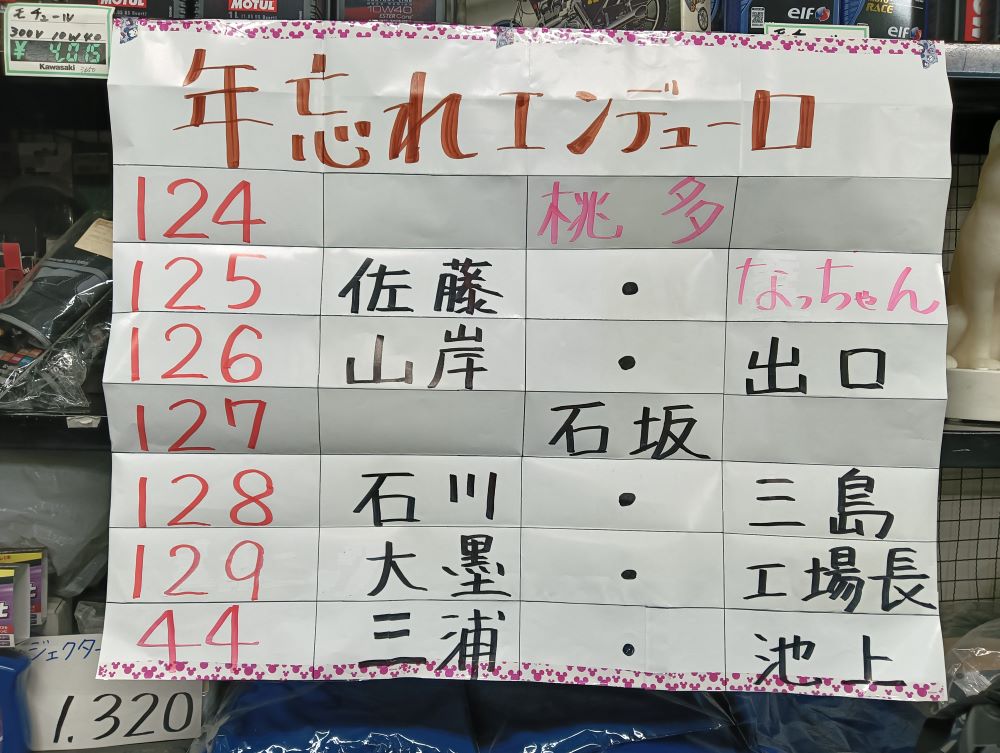 MOTUL
MOTUL
10W40
ESTER Core
elf
MOTO
RACE
elf
モチュール
300V 10W40
¥ 4,015
Kawasaki
年忘れエンデューロ
124 桃多
125 佐藤 ・ なっちゃん
126 山岸 ・ 出口
127 石坂
128 石川 ・ 三島
129 大墨 ・ 工場長
44 三浦 ・ 池上
ジェクター
1,320